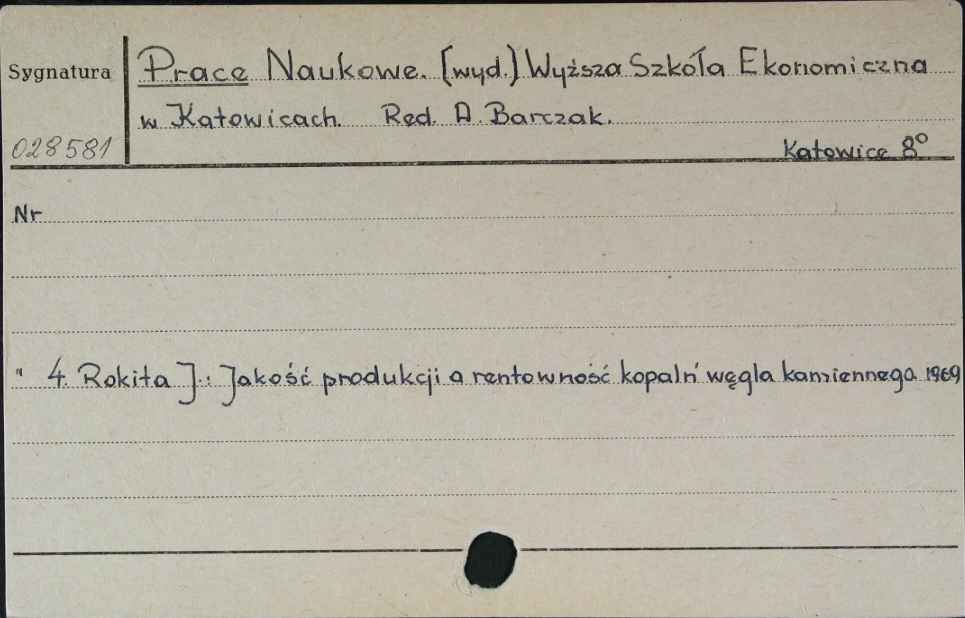 Sygnatura Prace Naukowe. [wyd.] Wyższa Szkoła Ekonomiczna
w Katowicach. Red. A. Barczak.
028581 Katowice 8°
Nr
" 4. Rokita J.: Jakość produkcji a rentowność kopalń węgla kamiennego 1969